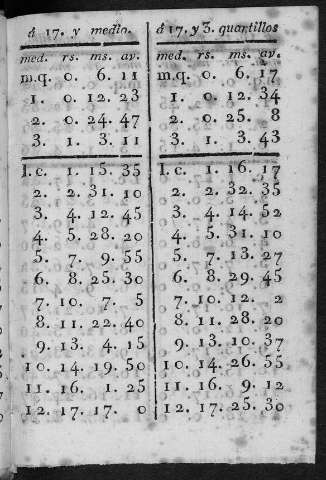 á 17. y medio.
med. rs. ms. av.
m.q. 0. 6. 11
1. 0. 12. 23
2. 0. 24. 47
3. 1. 3. 11
I. c. 1. 15. 35
2. 2. 31. 10
3. 4. 12. 45
4. 5. 28. 20
5. 7. 9. 55
6. 8. 25. 30
7. 10. 7. 5
8. 11. 22. 40
9. 13. 4. 15
10. 14. 19. 50
11. 16. 1. 25
12. 17. 17. 0
á 17. y 3. quartillos
med. rs. ms. av.
m.q. 0. 6. 17
1. 0. 12. 34
2. 0. 25. 8
3. 1. 3. 43
I. c. 1. 16. 17
2. 2. 32. 35
3. 4. 14. 52
4. 5. 31. 10
5. 7. 13. 27
6. 8. 29. 45
7. 10. 12. 2
8. 11. 28. 20
9. 13. 10. 37
10. 14. 26. 55
11. 16. 9. 12
12. 17. 25. 30